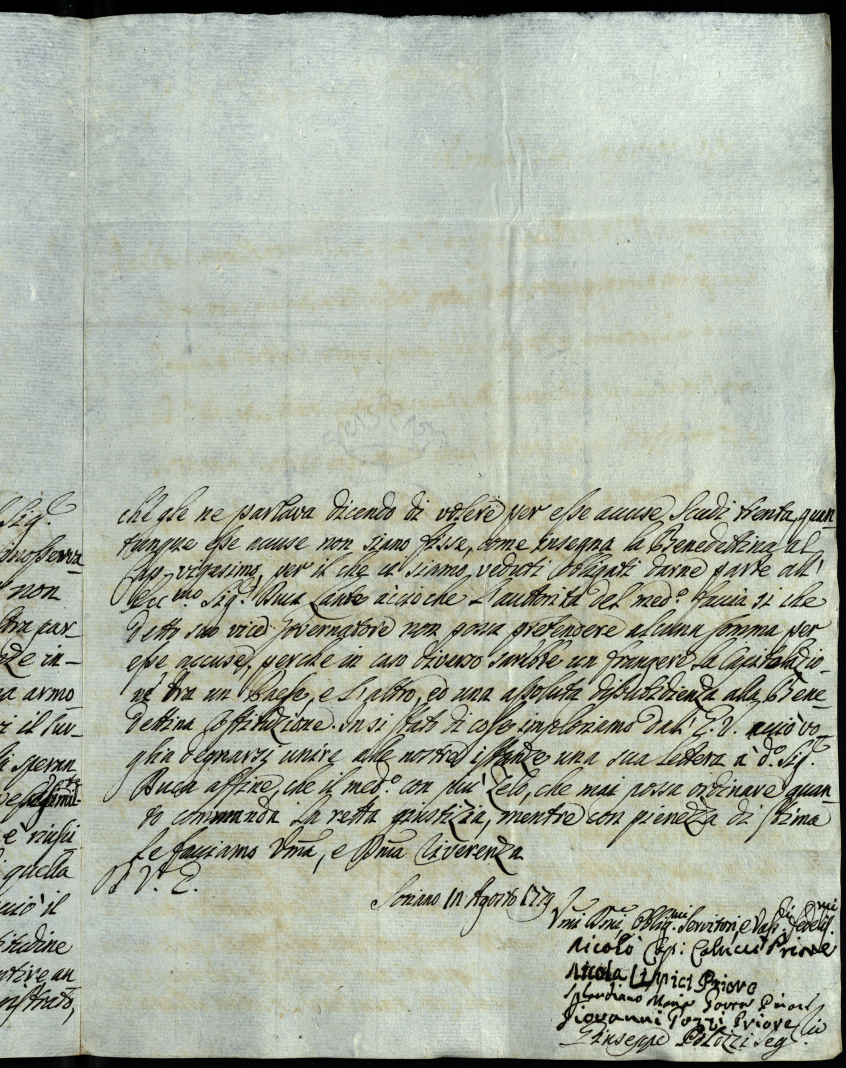 Sig.r
non
che gle ne parlava dicendo di volere per esse accuse, Scudi trenta, quan-
tunque esse accuse non siano fisse, come insegna la Benedettina al
per il che ci siamo veduti obligati darne parte all'
Ecc.mo Sig.r Duca Lante acciò che l'autorità del med.o faccia si che
detto suo vice Governatore non possa pretendere alcuna somma per
esse accuse, perche in caso diverso sarebbe un frangere la Capitolazio-
ne tra un Paese, e l'altro, ed una assoluta disubidienza alla Bene-
dettina Costituzione. In si stato di cose imploriamo dall'E.V. acciò vo-
glia degnarsi unire alle nostre istanze una sua lettera a d.o Sig.r
Duca affine, che il med.o con piu zelo, che mai possa ordinare quan-
to commanda la retta giustizia, mentre con pienezza di stima
Le facciamo Uma, e Dma riverenza
D. V. E.
Soriano Agosto 1779
Umi Dmi Obligmi Servitori, e
Nicolò Cap: Priore
Nicola Priore
Maria Priore
Giovanni Tozzi Priore
Giuseppe Polozzi Seg.rio
quella
il